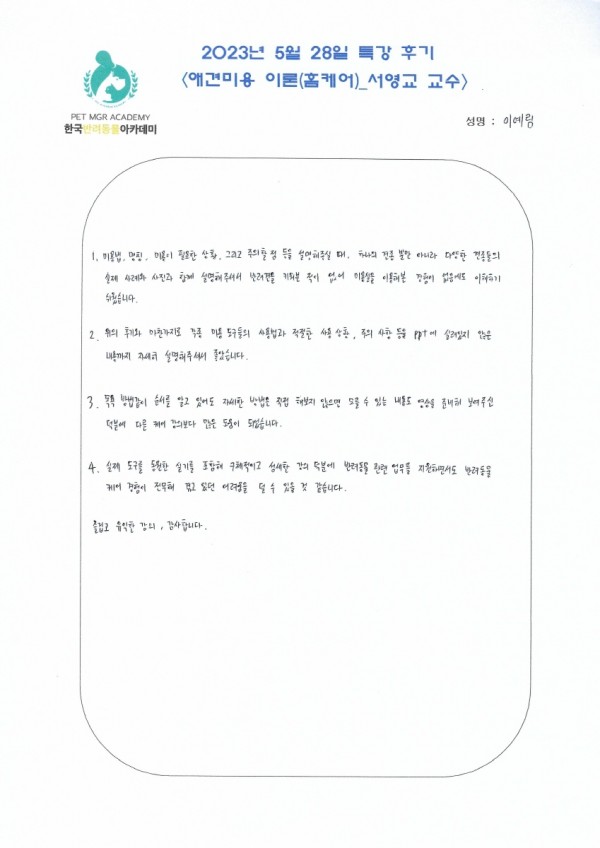 2023년 5월 28일 특강 후기
<애견미용 이론(홈케어)_서영교 교수>
PET MGR ACADEMY
한국반려동물아카데미
성명 : 이예림
1. 미용법, 명칭, 미용이 필요한 상황, 그리고 주의할 점 등을 설명해주실 때, 하나의 견종 뿐만 아니라 다양한 견종들의
실제 사례와 사진과 함께 설명해주셔서 반려견을 키워본 적이 없어 미용실을 이용해본 경험이 없음에도 이해하기
쉬웠습니다.
2. 위의 후기와 마찬가지로 각종 미용 도구들의 사용법과 적절한 사용 상황, 주의 사항 등을 ppt에 실려있지 않은
내용까지 자세히 설명해주셔서 좋았습니다.
3. 목욕 방법같이 순서를 알고 있어도 자세한 방법은 직접 해보지 않으면 모를 수 있는 내용도 영상을 준비해 보여주신
덕분에 다른 케어 강의보다 많은 도움이 되었습니다.
4. 실제 도구를 동원한 실기를 포함해 구체적이고 섬세한 강의 덕분에 반려동물 관련 업무를 지원하면서도 반려동물
케어 경험이 전무해 겪고 있던 어려움을 덜 수 있을 것 같습니다.
즐겁고 유익한 강의, 감사합니다.